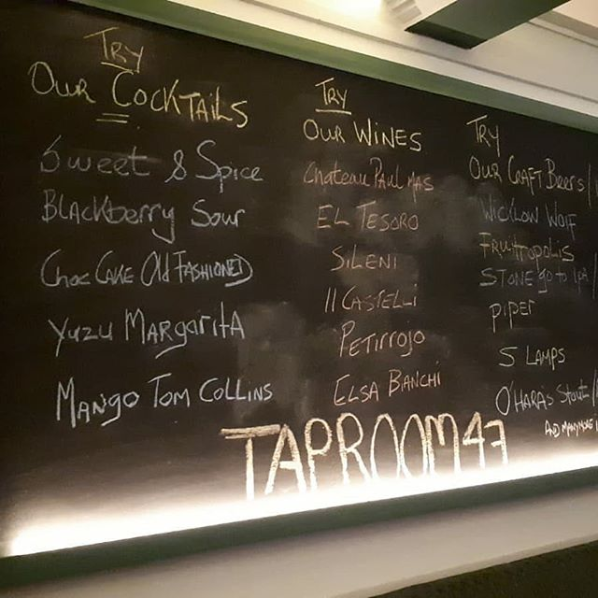 TRY
OUR COCKTAILS
Sweet & Spice
BLACKberry Sour
Choc CAKE Old FASHIONED
Yuzu MARgaritA
MANgo Tom COLLINS
TRY
OUR WINES
Chateau PAUL MAS
EL TESORO
SILENI
Il CASTELLI
PETIRROJO
ELSA BIANCHI
TRY
OUR CRAFT Beers /
WICKLOW WOLF
FRUITTOPOLIS
STONE go to IPA /
PIPER
5 LAMPS
O'HARA'S Stout /
AND MANY MORE
TAPROOM 47